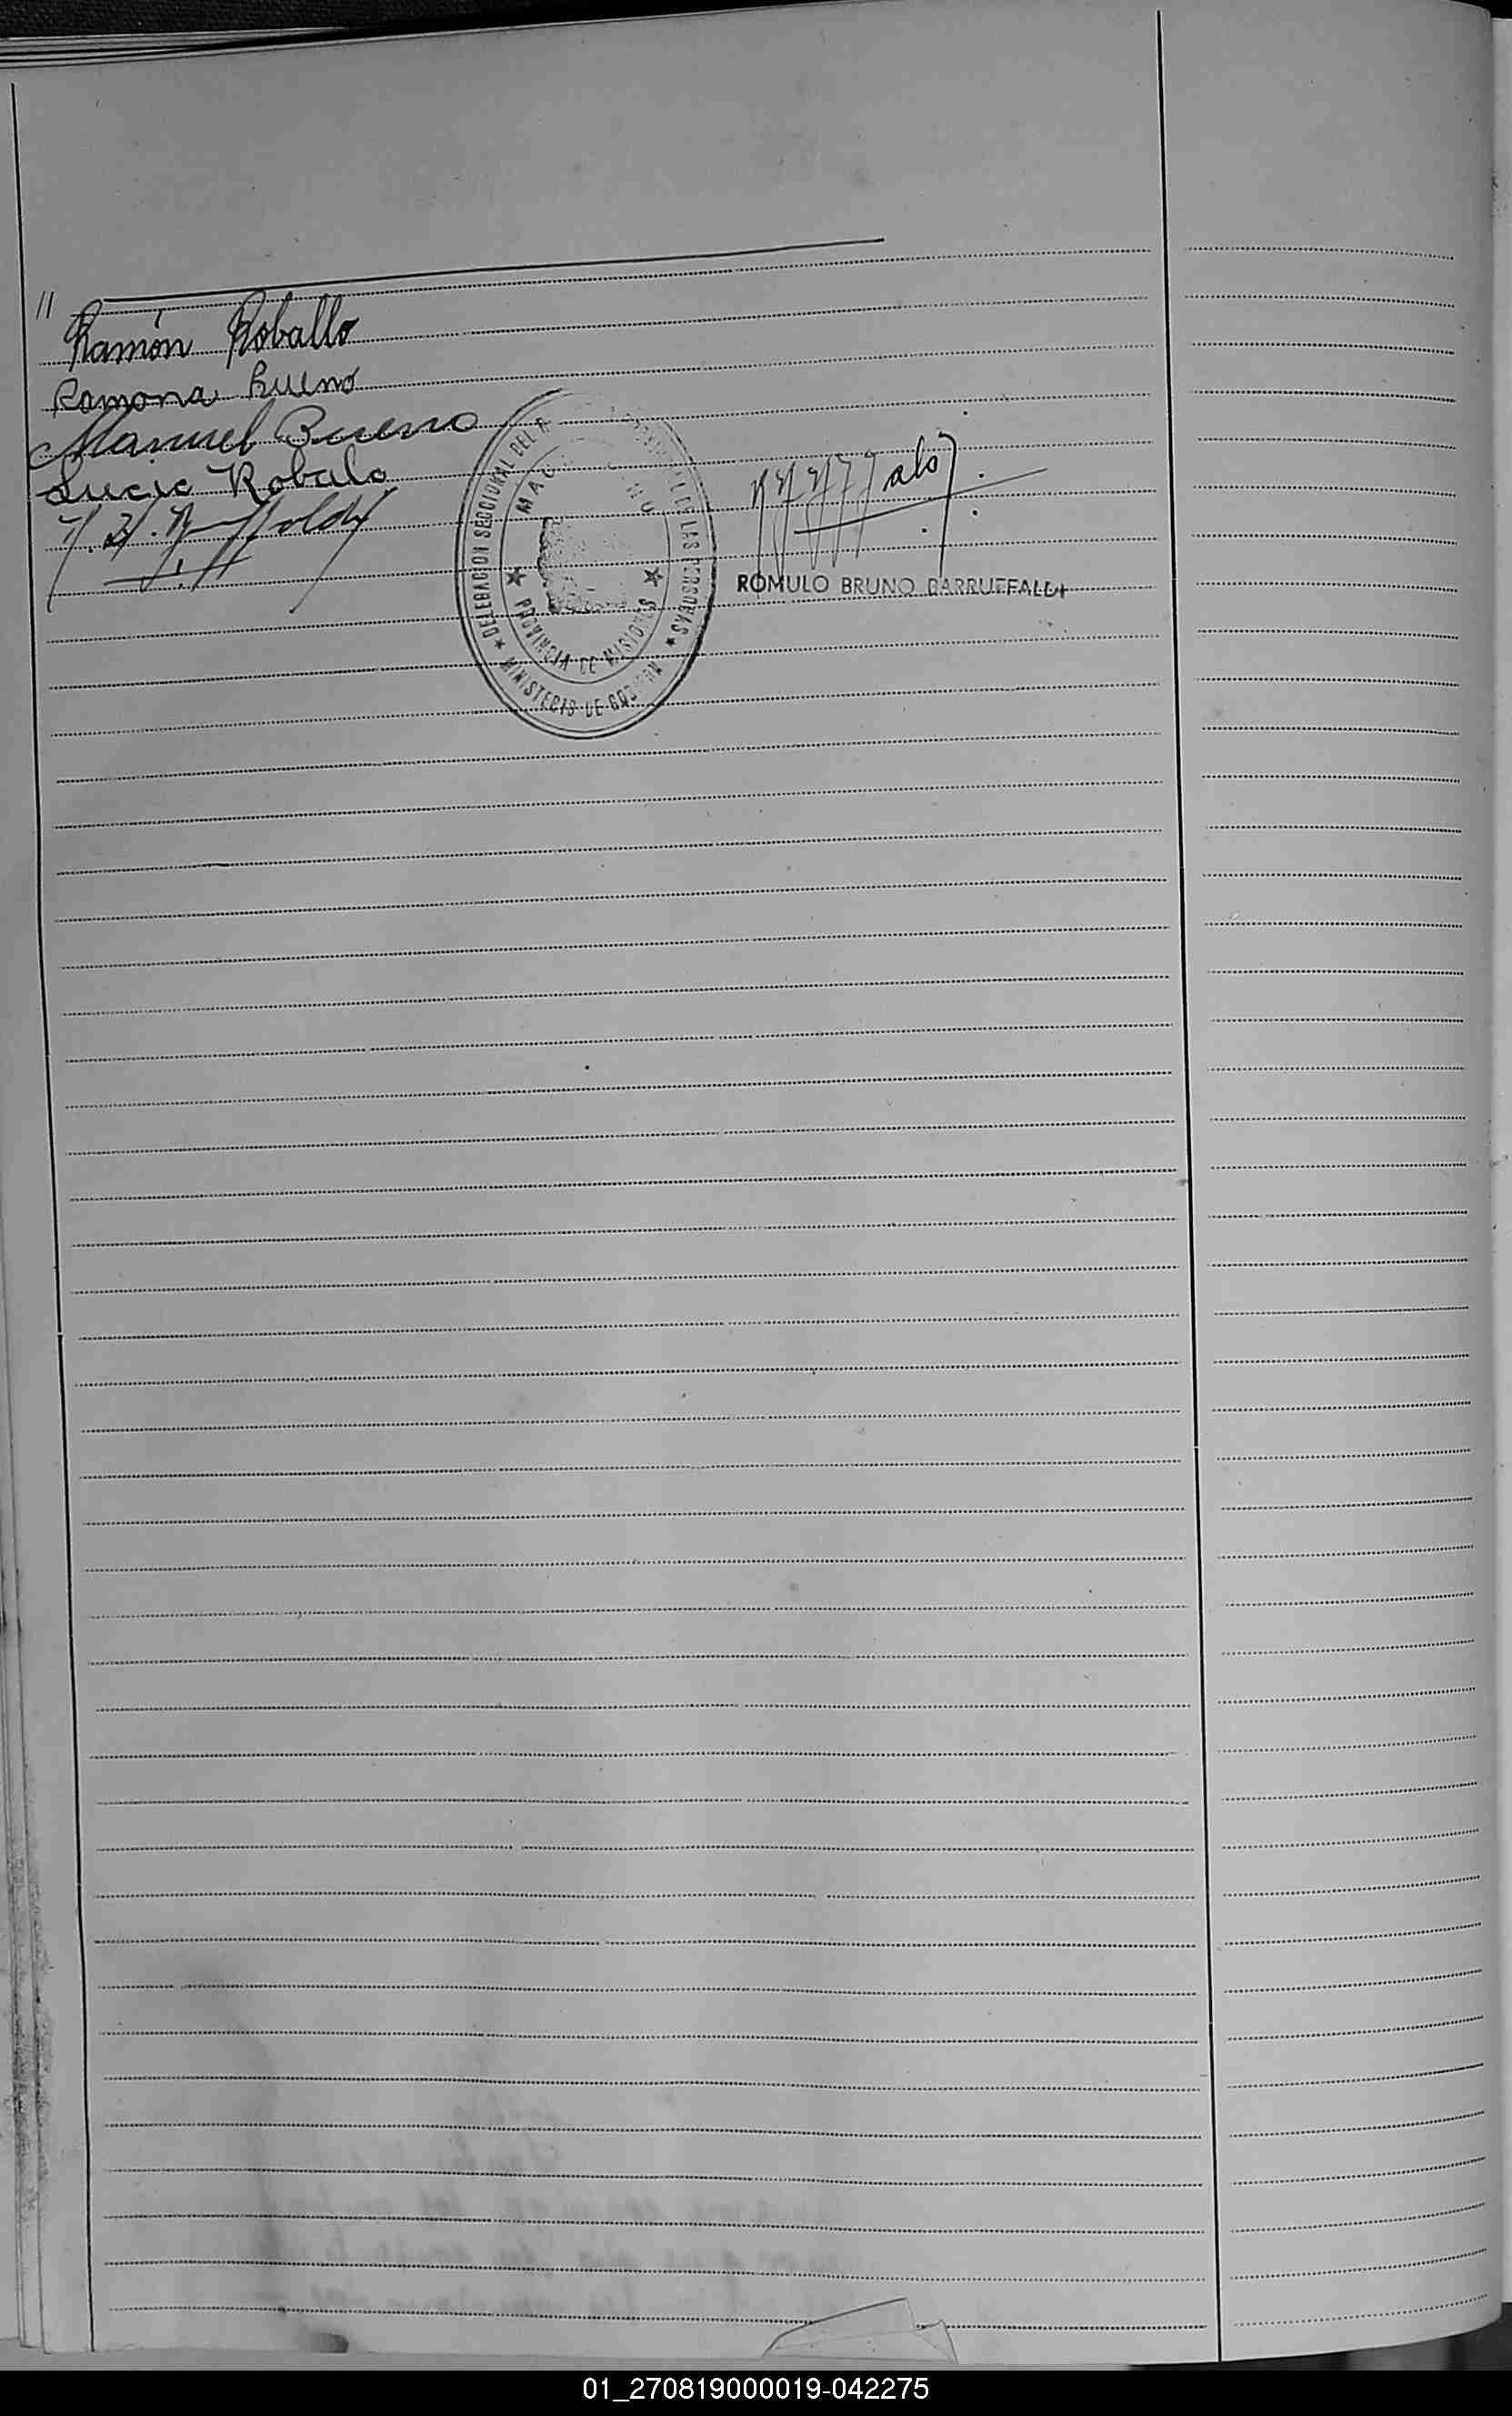 //
Ramón Roballo
Ramona Bueno
Manuel Bueno
Lucio Robalo
DELEGACION SECCIONAL DEL R
DE LAS PERSONAS
MINISTERIO DE
PROVINCIA DE MISIONES
ROMULO BRUNO BARRUFFALDI
01_270819000019-042275